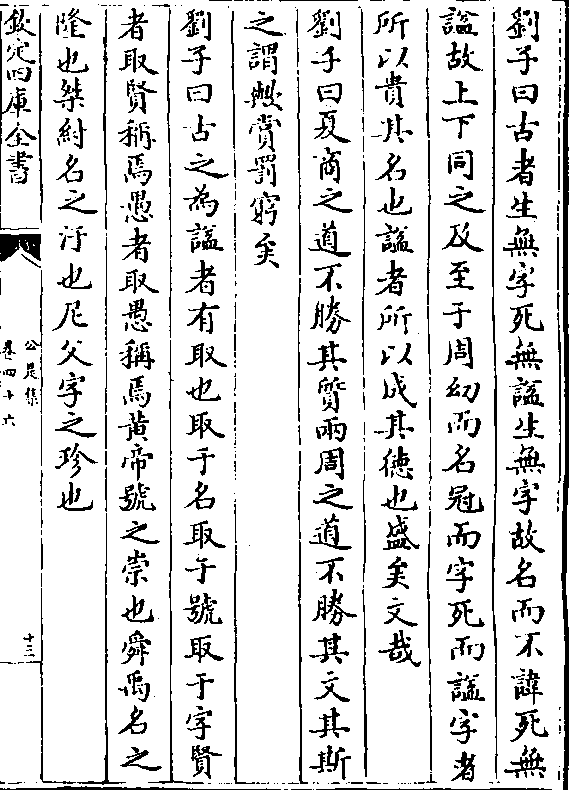 劉子曰古者生無字死無諡生無字故名而不諱死無
諡故上下同之及至于周幼而名冠而字死而諡字者
所以貴其名也諡者所以成其徳也盛矣文哉
劉子曰夏商之道不勝其質兩周之道不勝其文其斯
之謂歟賞罰窮矣
劉子曰古之為諡者有取也取于名取于號取于字賢
者取賢稱焉愚者取愚稱焉黄帝號之崇也舜禹名之
隆也桀紂名之汙也尼父字之珍也
欽定四庫全書
公是集
卷四十六
十三